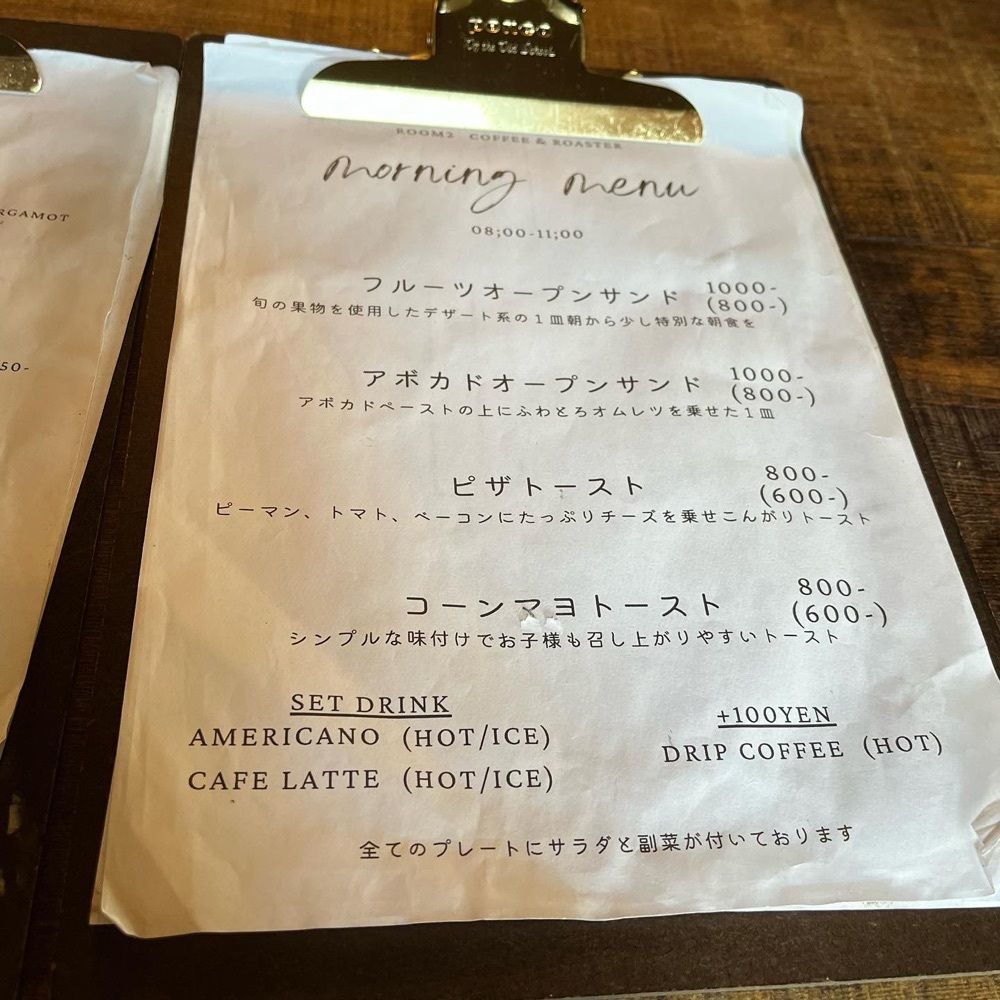 ROOM2 COFFEE & ROASTER
morning menu
08;00-11;00
フルーツオープンサンド 1000-
(800-)
旬の果物を使用したデザート系の1皿朝から少し特別な朝食を
アボカドオープンサンド 1000-
(800-)
アボカドペーストの上にふわとろオムレツを乗せた1皿
ピザトースト 800-
(600-)
ピーマン、トマト、ベーコンにたっぷりチーズを乗せこんがりトースト
コーンマヨトースト 800-
(600-)
シンプルな味付けでお子様も召し上がりやすいトースト
SET DRINK
AMERICANO (HOT/ICE)
CAFE LATTE (HOT/ICE)
+100YEN
DRIP COFFEE (HOT)
全てのプレートにサラダと副菜が付いております
RGAMOT
50-